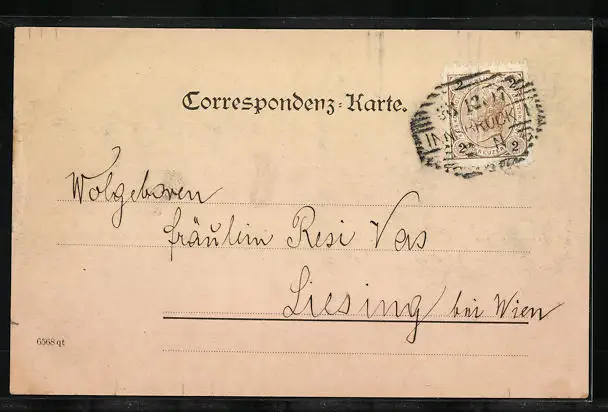 Correspondenz-Karte.
2 2
INN BRUCK
Wolgeboren
fräulein Resi Vas
Liesing bei Wien
6568 qt